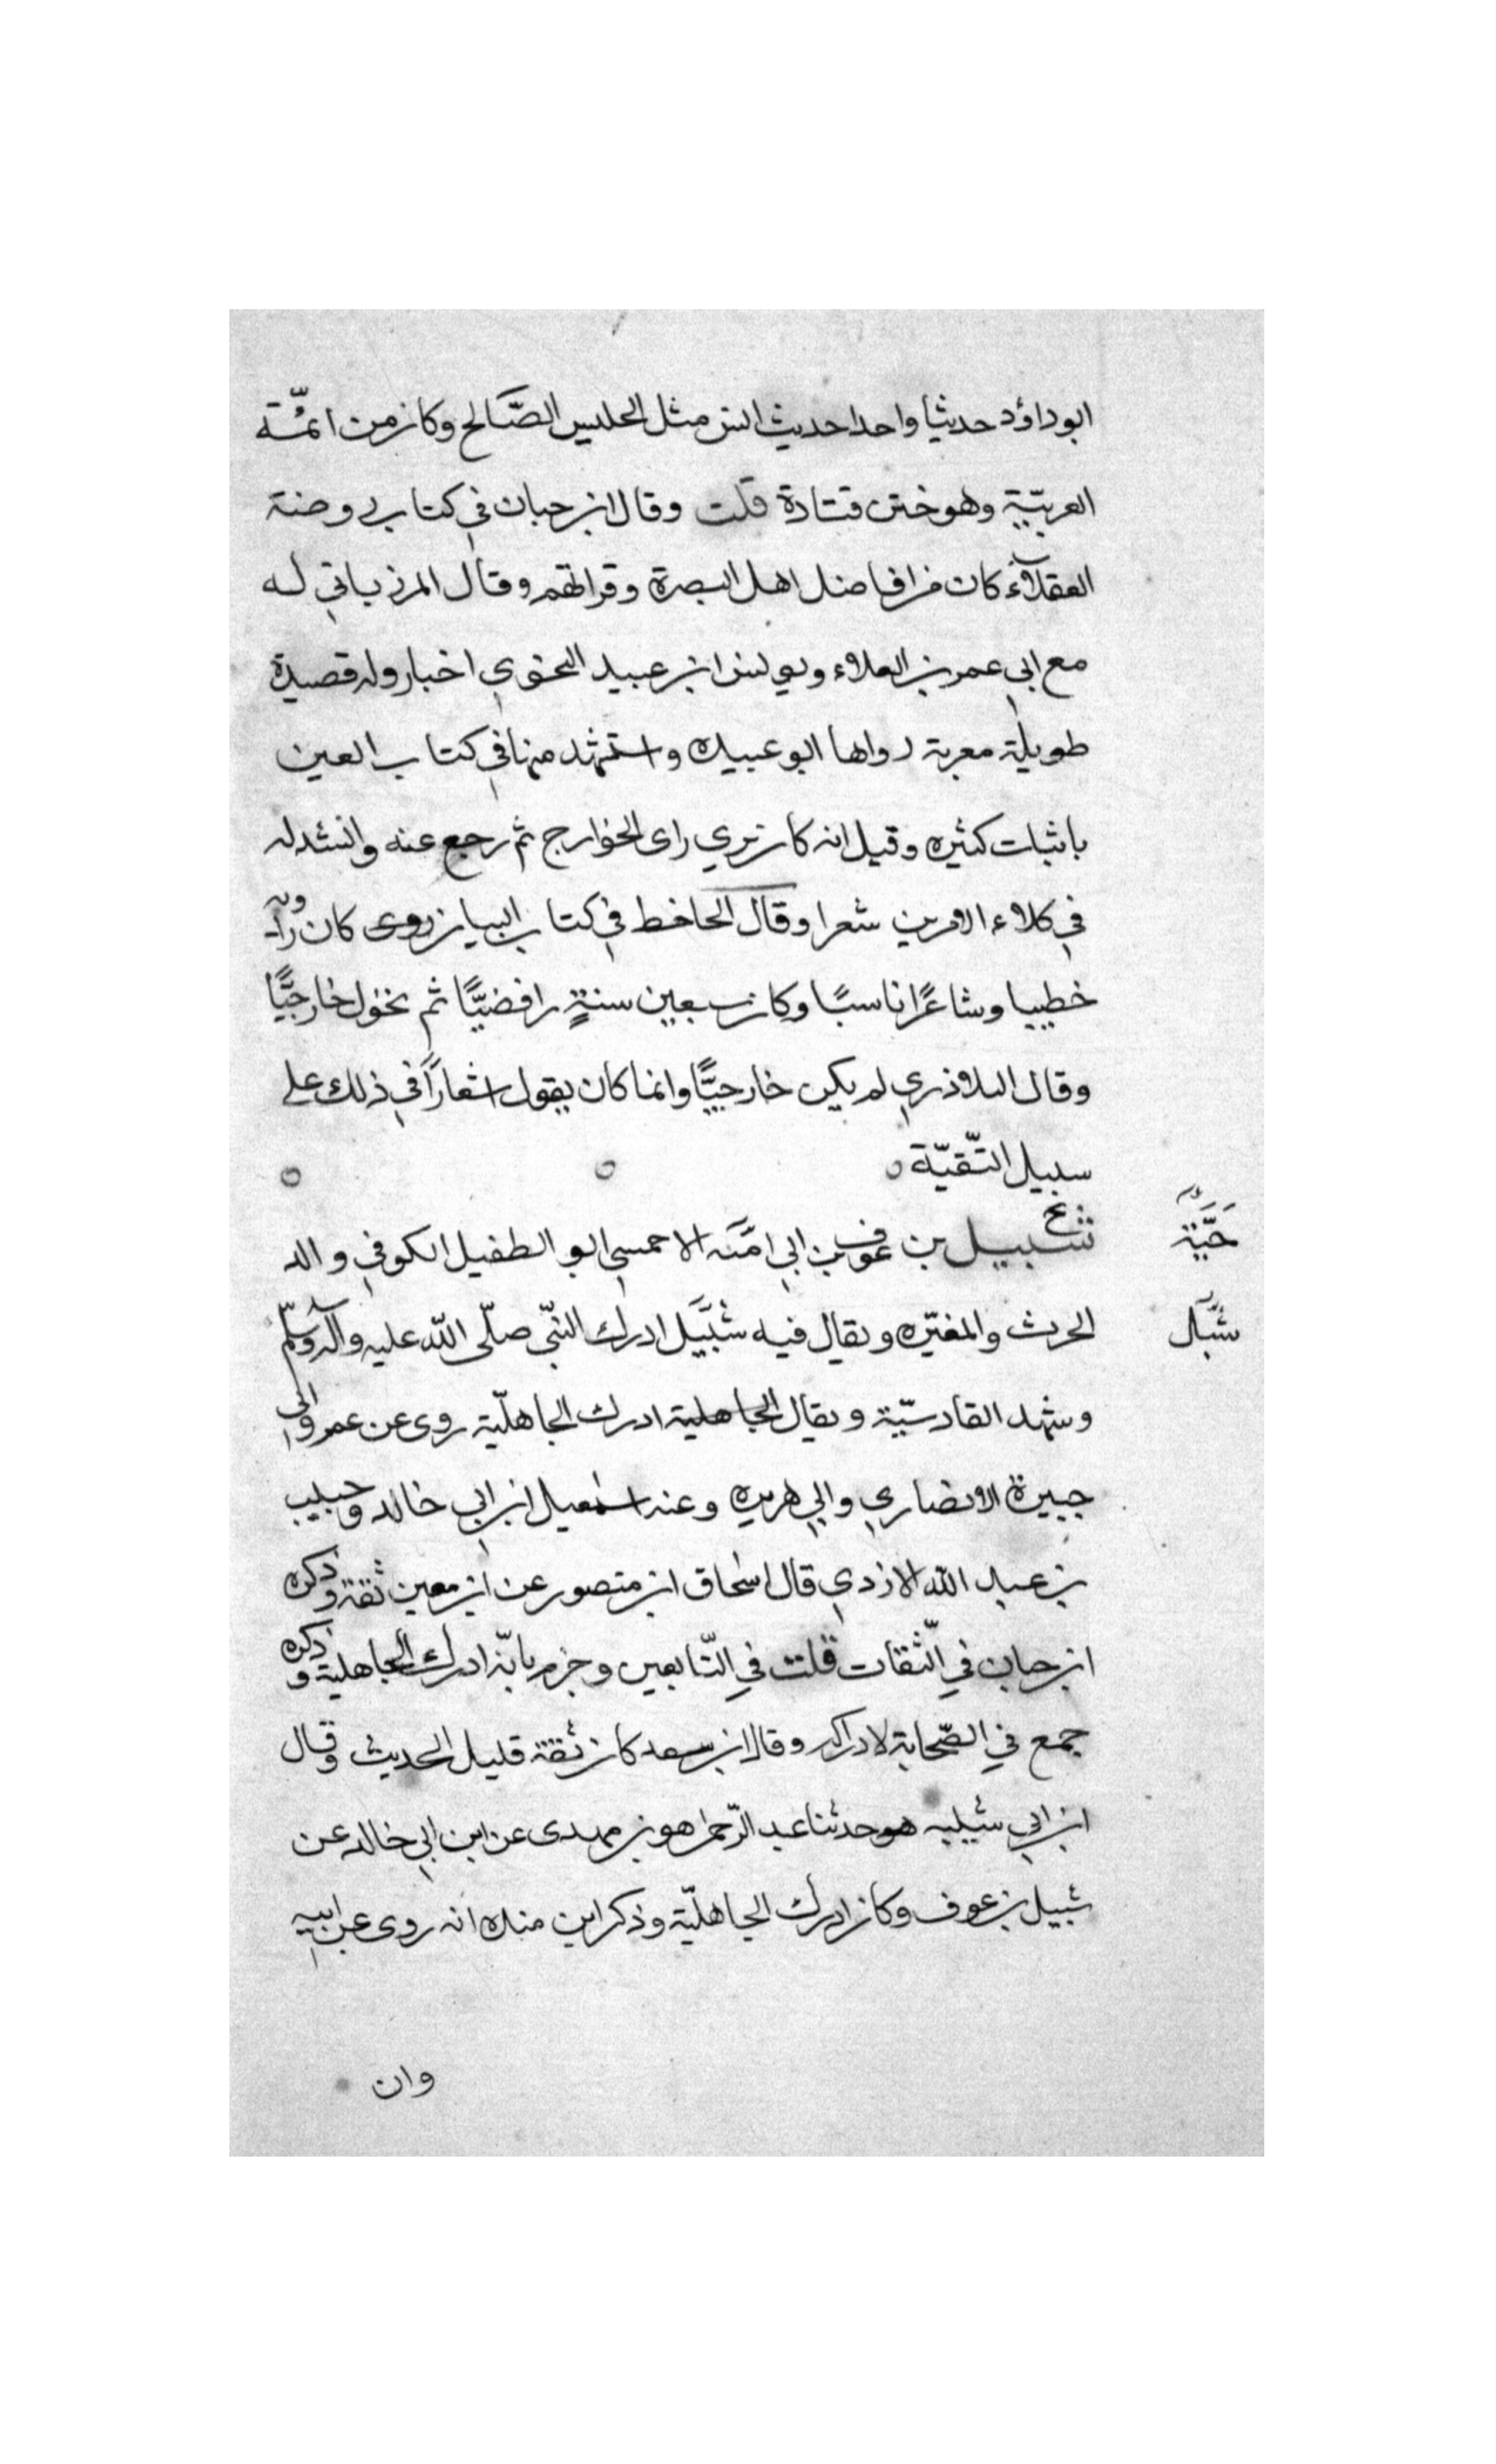 ابوداؤد حديثا واحدا حديث انس مثل الجليس الصّالح وكان من ائمّة
العربيّة وهو ختن قتادة قلت وقال ابن حبان في كتاب روضة
العقلاء كان من افاضل اهل البصرة وقرائهم وقال المرزباني له
مع ابي عمر بن العلاء ويونس ابن عبيد النحوي اخبار وله قصيدة
طويلة معربة رواها ابو عبيده واستشهد منها في كتاب العين
بابيات كثيره وقيل انه كان يري راى الخوارج ثم رجع عنه وانشد له
في كلاء الامرين شعرا وقال الحاحظ في كتاب البيان روى كان راوية
خطيبا وشاعرًا ناسبًا وكان سبعين سنةٍ رافضيًّا ثم تحول خارجيًّا
وقال البلاذري لم يكن خارجيًّا وانما كان يقول اشعارًا في ذلك على
سبيل التّقيّة
حَيَّة
بخ
شبيل بن عوف بن ابي امّنه الاحمسي ابو الطفيل الكوفي والد
شبَل
الحرث والمغيّره ويقال فيه شُبَيَل ادرك النبّي صلّى اللّه عليه وآله وسلّم
وشهد القادسيّة ويقال الجاهلية ادرك الجاهليّة روى عن عمر وابي
جبيرة الانصاري وابي هريره وعنه اسمٰعيل ابن ابي خالد وحبيب
بن عبد اللّه الازدي قال اسحٰاق ابن منصور عن ابن معين ثقة وذكره
ابن حبان في الثّقات قلت في التّابعين وجزم بانّه ادرك الجاهلية وذكره
جمع في الصّحابة لادراكه وقال ابن سعد كان ثقة قليل الحديث وقال
ابن ابي شيبه هو حدثنا عبد الرّحمن هو بن مهدى عن ابن ابي خالد عن
شبيل بن عوف وكان ادرك الجاهليّة وذكر ابن منده انه روى عن ابيه
وان